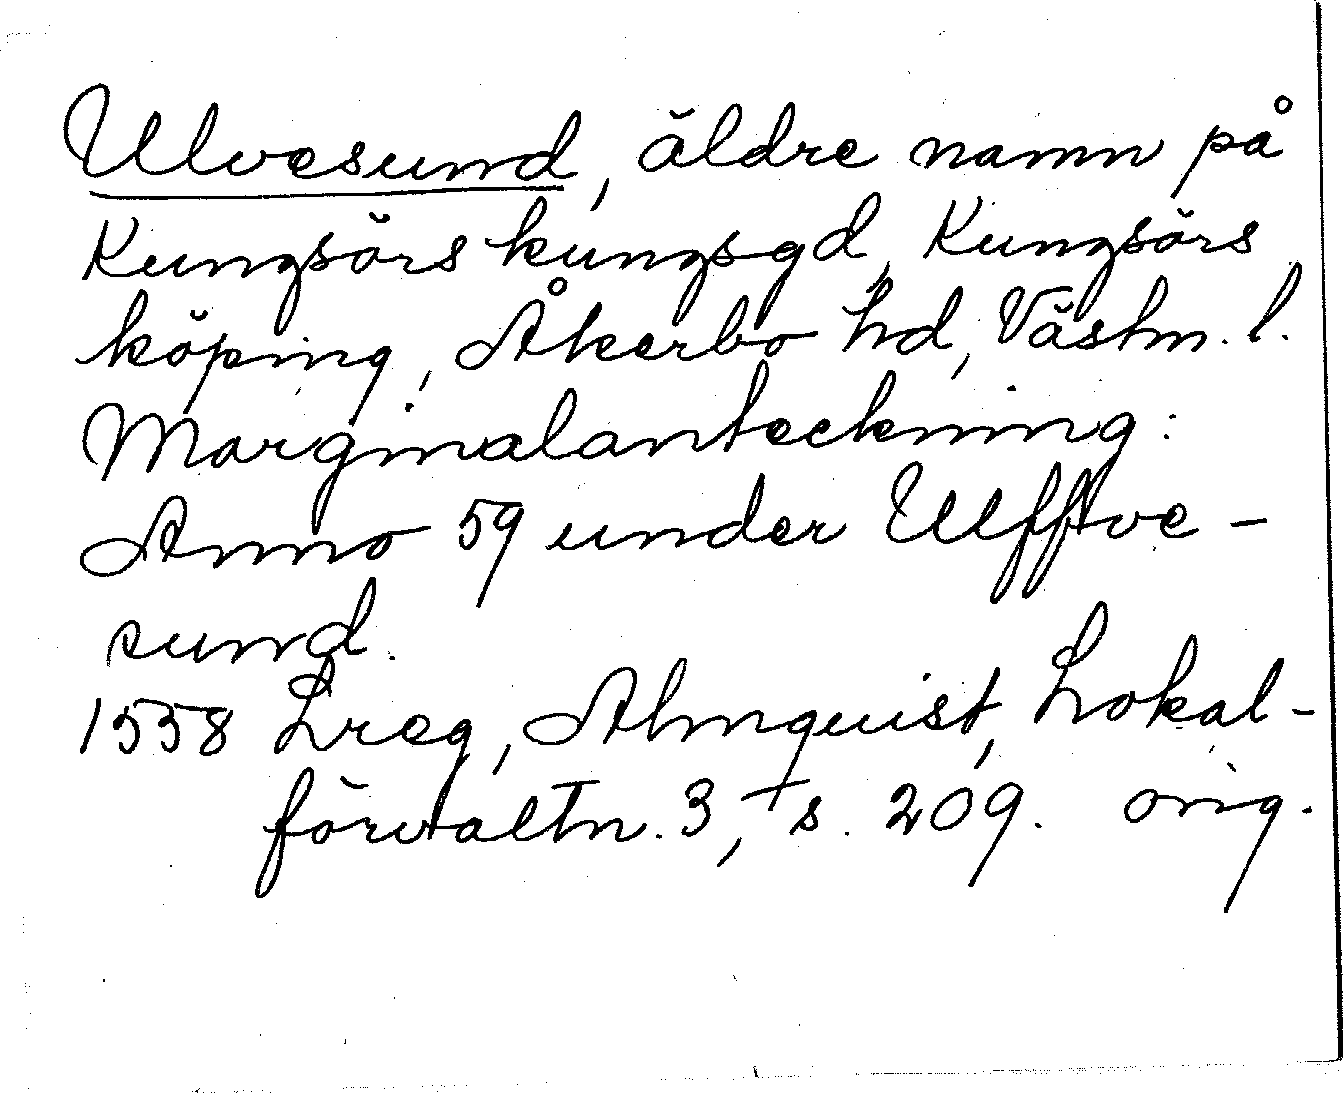 Ulvesund, äldre namn på
Kungsörs kungsgd, Kungsörs
köping, Åkerbo hd, Västm. l.
Marginalanteckning:
Anno 59 under Ulffve-
sund.
1558 Lreg, Almquist, Lokal-
förvaltn. 3, s. 209. orig.